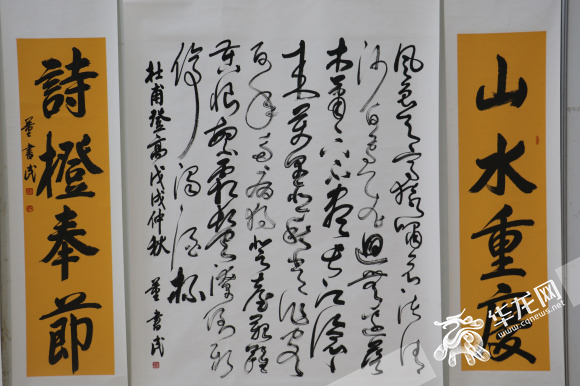 山水重慶
風急天高猿嘯哀渚清
沙白鳥飛迴無邊落
木蕭〻下不盡長江滾〻
來萬里悲秋常作客
百年多病獨登臺艱難
苦恨繁霜鬢潦倒新
停濁酒杯
杜甫登高戊戌仲秋 董書民
詩橙奉節
董書民
华龙网
www.cqnews.net